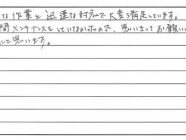 な作業と迅速な対応で大変満足しています。
メンテナンスをしていなかったので、思い切ってお願い
と思います。